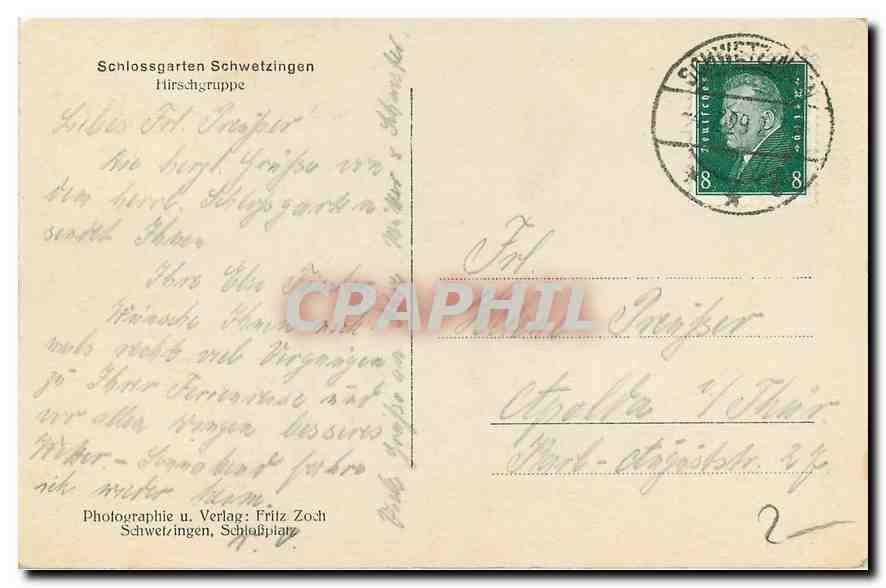 Schlossgarten Schwetzingen
Hirschgruppe
Liebes Frl. Preysser!
Die herzl. Grüße von
dem herrl. Schloßgarten
sendet Ihnen
Ihre Else
Wünsche Ihnen noch
recht viel Vergnügen
zu Ihrer Ferienreise und
vor allen Dingen besseres
Wetter. – Sonnabend fahre
ich wieder heim.
Viele Grüße an Mutter & Schwester.
Photographie u. Verlag: Fritz Zoch
Schwetzingen, Schloßplatz
SCHWETZINGEN
Deutsches Reich
8 8
Frl.
Preysser
Apolda i/Thür
Karl-Auguststr. 27
2
CPAPHIL